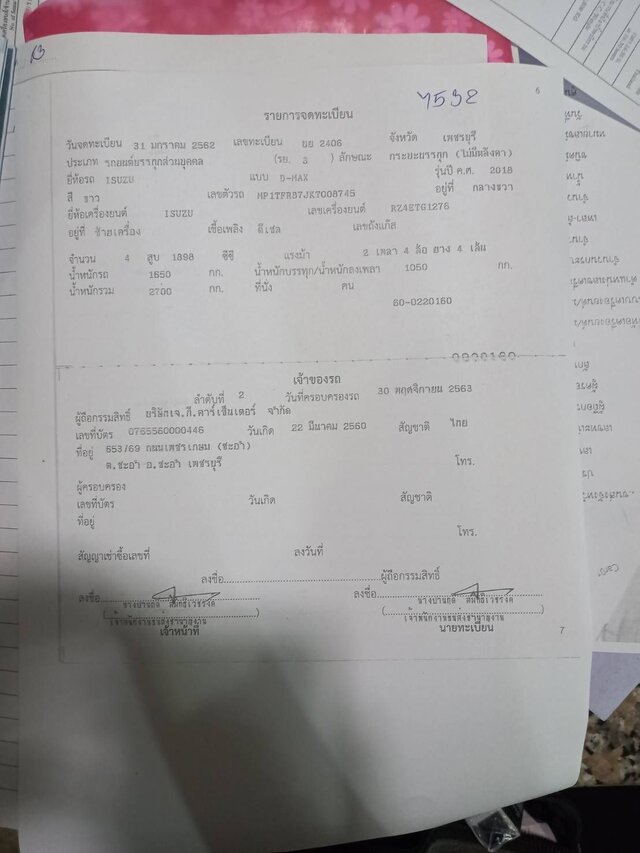 7532
6
รายการจดทะเบียน
วันจดทะเบียน 31 มกราคม 2562 เลขทะเบียน ยย 2406 จังหวัด เพชรบุรี
ประเภท รถยนต์บรรทุกส่วนบุคคล (รย. 3 ) ลักษณะ กระบะบรรทุก (ไม่มีหลังคา)
ยี่ห้อรถ ISUZU แบบ D-MAX รุ่นปี ค.ศ. 2018
สี ขาว เลขตัวรถ MP1TFR87JKT008745 อยู่ที่ กลางขวา
ยี่ห้อเครื่องยนต์ ISUZU เลขเครื่องยนต์ RZ4ETG1276
อยู่ที่ ซ้ายเครื่อง เชื้อเพลิง ดีเซล เลขถังแก๊ส
จำนวน 4 สูบ 1898 ซีซี แรงม้า 2 เพลา 4 ล้อ ยาง 4 เส้น
น้ำหนักรถ 1650 กก. น้ำหนักบรรทุก/น้ำหนักลงเพลา 1050 กก.
น้ำหนักรวม 2700 กก. ที่นั่ง คน
60-0220160
0220160
เจ้าของรถ
ลำดับที่ 2 วันที่ครอบครองรถ 30 พฤศจิกายน 2563
ผู้ถือกรรมสิทธิ์ บริษัทเจ.ที.คาร์เซ็นเตอร์ จำกัด
เลขที่บัตร 0765560000446 วันเกิด 22 มีนาคม 2560 สัญชาติ ไทย
ที่อยู่ 653/69 ถนนเพชรเกษม (ชะอำ)
ต.ชะอำ อ.ชะอำ เพชรบุรี โทร.
ผู้ครอบครอง
เลขที่บัตร วันเกิด สัญชาติ
ที่อยู่
โทร.
สัญญาเช่าซื้อเลขที่ ลงวันที่
ลงชื่อ ผู้ถือกรรมสิทธิ์
ลงชื่อ ลงชื่อ
เจ้าหน้าที่ นายทะเบียน
7